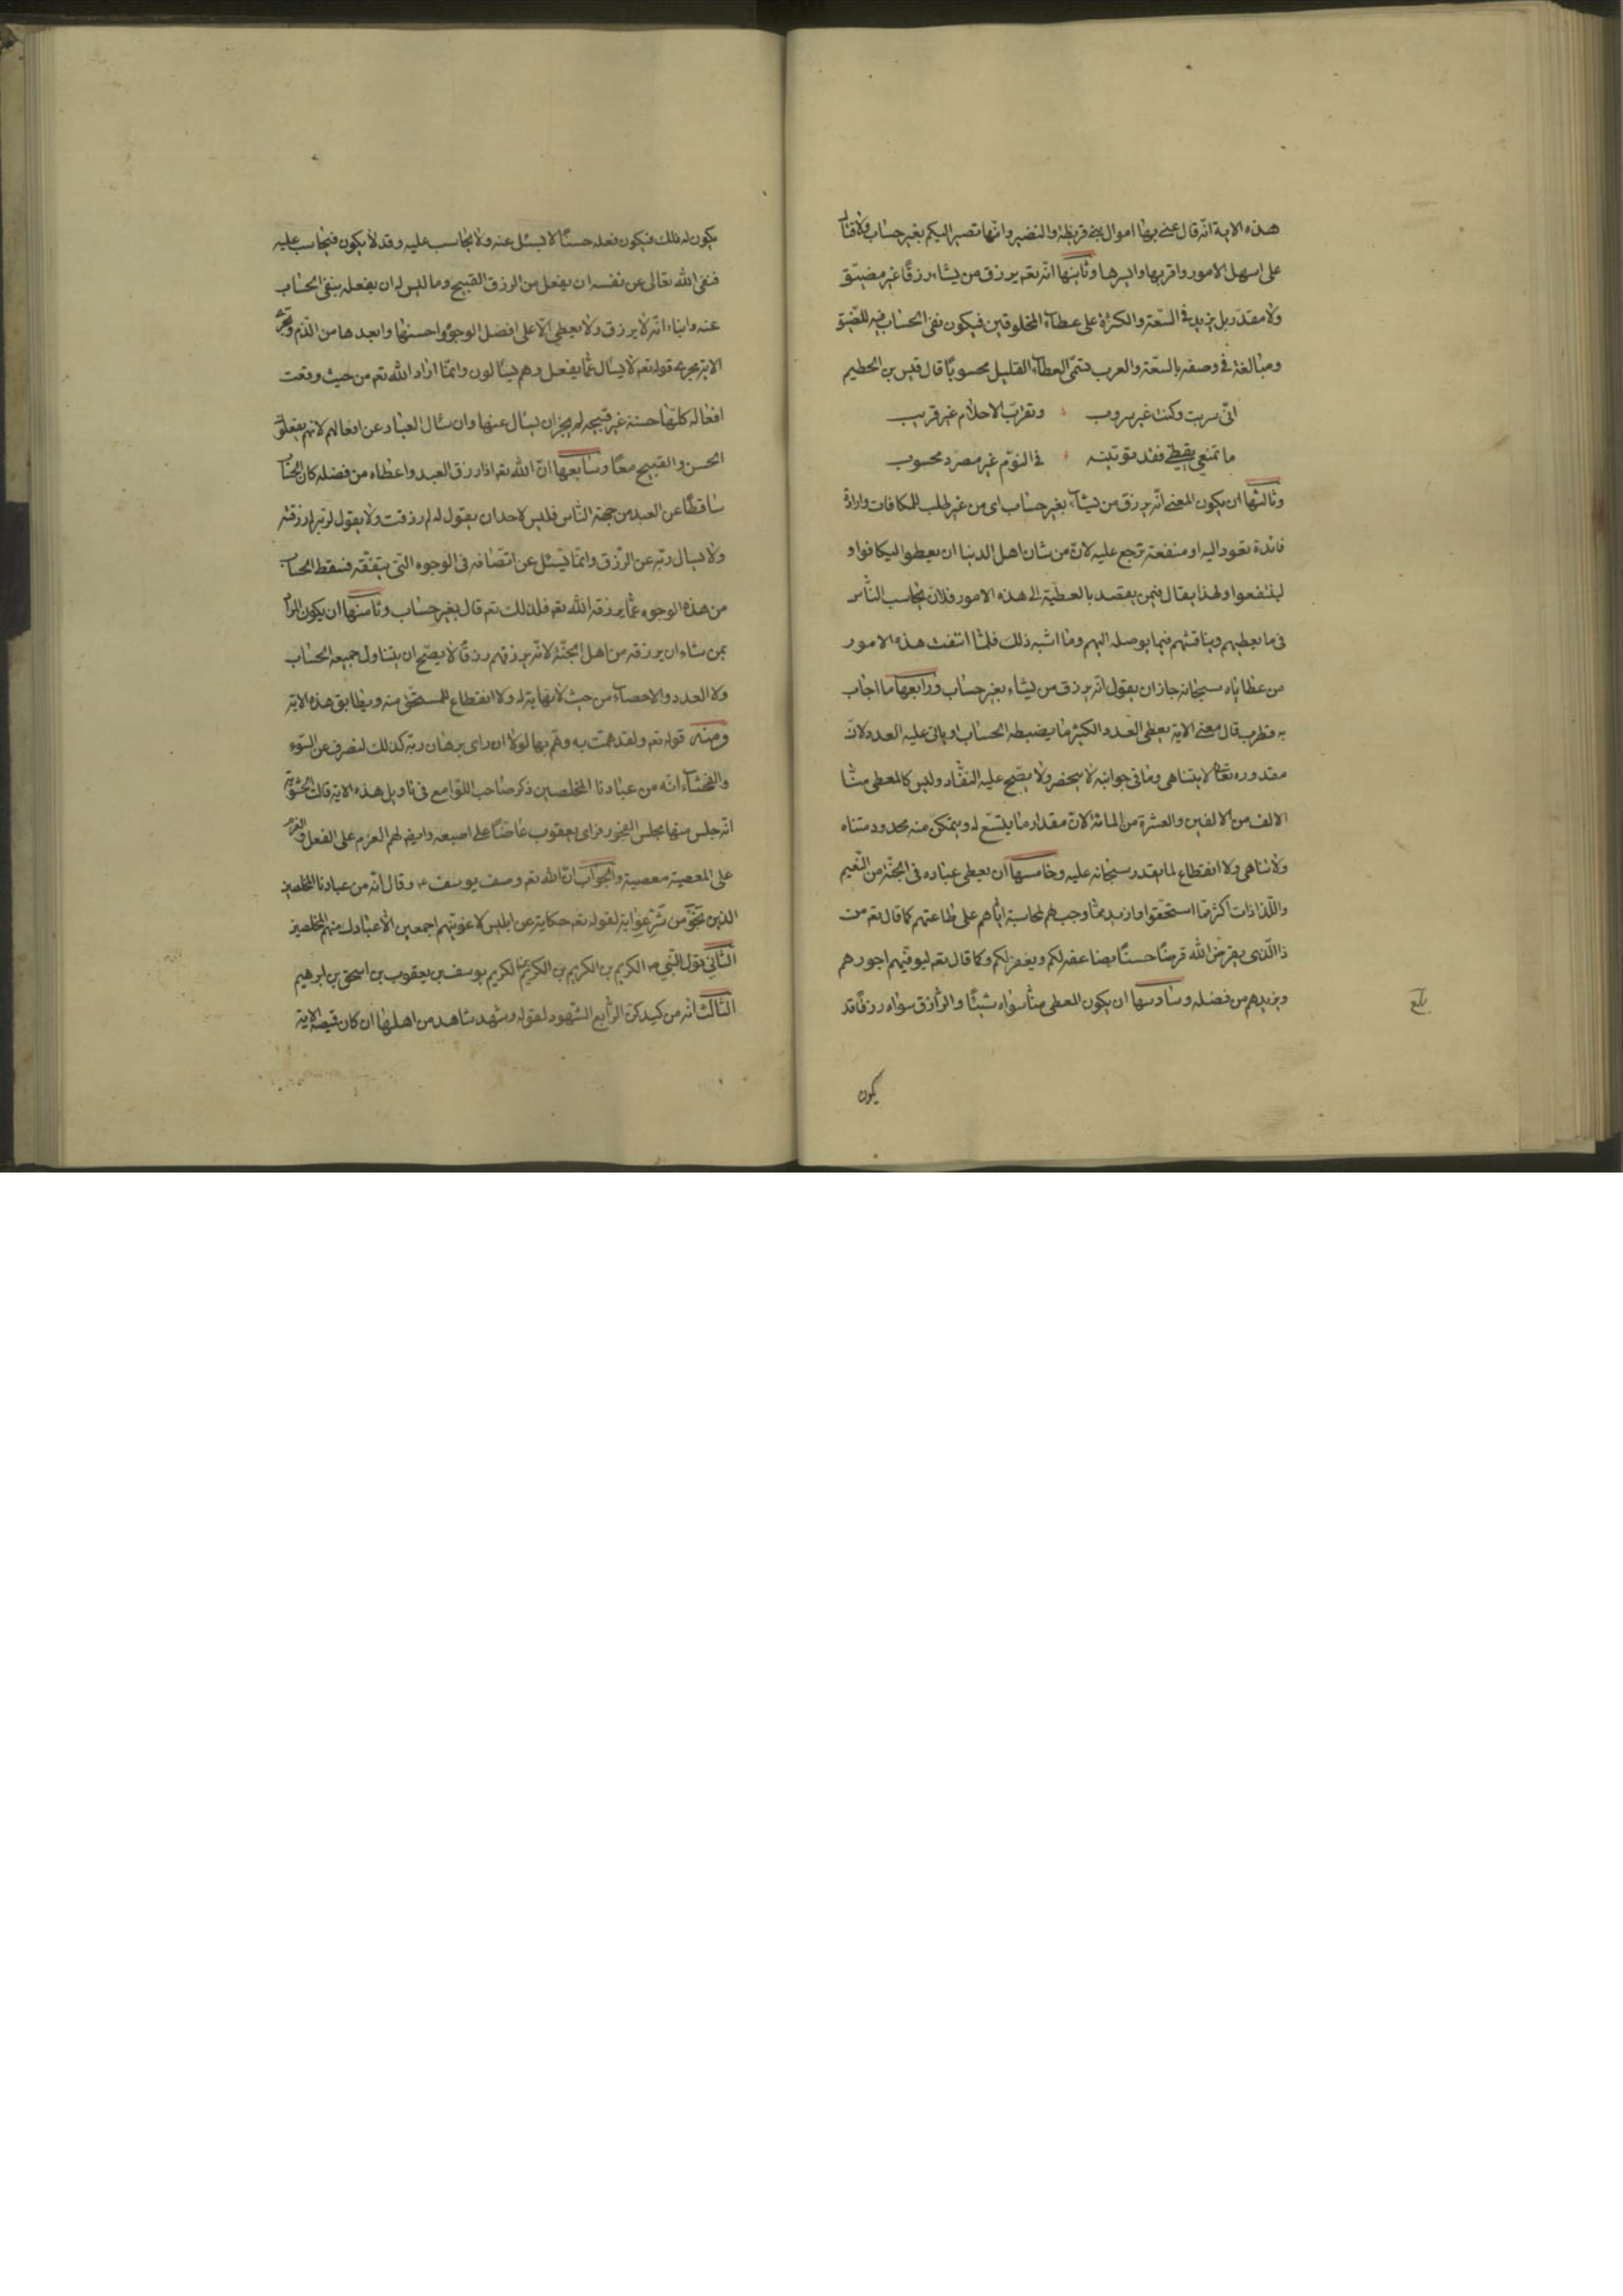 هذه الاية انه قال عنى بها اموال بنى قريظة والنضير وانها تصير اليكم بغير حساب ولا قتال
على اسهل الامور واقربها وايسرها وثانيها انه تعم يرزق من يشاء رزقا غير مضيّق
ولا مقدر بل يزيد فى السّعة والكثرة على عطاء المخلوقين فيكون نفى الحساب فيه للضيق
ومبالغة فى وصفه بالسّعة والعرب تسمّى العطاء القليل محسوبا قال قيس بن الخطيم
انّى سربت وكنت غير سروب وتقرّب الاحلام غير قريب
ما تمنعى يقظى فقد توتينه فى النوم غير مصرد محسوب
وثالثها ان يكون المعنى انّه يرزق من يشاء بغير حساب اى من غير طلب للمكافات وارادة
فائدة تعود اليه او منفعة ترجع عليه لانّ من شان اهل الدنيا ان يعطوا ليكافوا و
لينتفعوا ولهذا يقال فيمن يقصد بالعطية الى هذه الامور فلان يحاسب النّاس
فى ما يعطيهم ويناقشهم فيما يوصله اليهم وما اشبه ذلك فلمّا انتفت هذه الامور
من عطاياه سبحانه جاز ان يقول انّه يرزق من يشاء بغير حساب ورابعها ما اجاب
به قطرب قال معنى الاية يعطى العدد الكثير ما يضبطه الحساب او ياتى عليه العدد لانّ
مقدوره تعالى لا يتناهى وما فى جوانبه لا ينحصر ولا يصّح عليه النفّاد وليس كالمعطى منّا
الالف من الالفين والعشرة من المائة لانّ مقدار ما يتسّع له ويتمكن منه محدود متناه
ولا تناهى ولا انقطاع لما يقدر سبحانه عليه وخامسها ان يعطى عباده فى الجنّة من النّعيم
واللّذاذات اكثر مما استحقوا وازيد ممّا وجب لهم لمحاسبة ايّاهم على طاعتهم كما قال تعم من
ذا الّذى يقرض الله قرضا حسنا يضاعفه لكم ويغفر لكم وكما قال تعم ليوفّيهم اجورهم
ويزيدهم من فضله وسادسها ان يكون المعطى منّا سواه شيئا والرّازق سواه رزقا قد
بلغ
يكون
يكون له ذلك فيكون فعله حسنا لا يسئل عنه ولا يحاسب عليه وقد لا يكون فيحاسب عليه
فنفى الله تعالى عن نفسه ان يفعل من الرزق القبيح وما ليس له ان يفعله بنفى الحساب
عنه وانباء انّه لا يرزق ولا يعطى الّا على افضل الوجوه واحسنها وابعدها من الذّم
الاية مجرى قوله تعم لا يسال عمّا يفعل وهم يسالون وانمّا اراد الله تعم من حيث وقعت
افعاله كلّها حسنة غير قبيحه لم يجز ان يسال عنها وان سال العباد عن افعالهم لانهم يفعلون
الحسن والقبيح معا وسابعها انّ الله تعم اذا رزق العبد واعطاه من فضله كان الحساب
ساقطا عن العبد من جهة النّاس فليس لاحد ان يقول له لم رزقت ولا يقول لربّه لم رزقته
ولا يسال ربّه عن الرّزق وانمّا يسئل عن انفاقه فى الوجوه التى ينفقه فسقط الحساب
من هذه الوجوه عمّا يرزقه الله تعم فلذلك تعم قال بغير حساب وثامنها ان يكون المراد
بمن يشاء ان يرزقه من اهل الجنّة لانّه يرزقهم رزقا لا يصّح ان يتناول جميعه الحساب
ولا العدد والاحصاء من حيث لا نهاية له ولا انقطاع للمستحق منه ويطابق هذه الاية
ومنه قوله تعم ولقد همت به وهّم بها لولا ان راى برهان ربّه كذلك لنصرف عن السّوء
والفحشاء انّه من عبادنا المخلصين ذكر صاحب اللوامع فى تاويل هذه الاية قالت الحشوية
انّه جلس منها مجلس الفجور فراى يعقوب عاضّا على اصبعه وايضا لهم العزم على الفعل والعزم
على المعصية معصية والجواب انّ الله تعم وصف يوسف ع وقال انّه من عبادنا المخلصين
الذين نجوّ من شرّ غوايته لقوله تعم حكاية عن ابليس لاغوينّهم اجمعين الّا عبادك منهم المخلصين
الثّانى قول النّبي ص الكريم بن الكريم بن الكريم بن الكريم يوسف بن يعقوب بن اسحق بن ابرهيم
الثّالث انّه من كيدكنّ الرّابع الشّهود لقوله وشهد شاهد من اهلها ان كان قميصه الاية